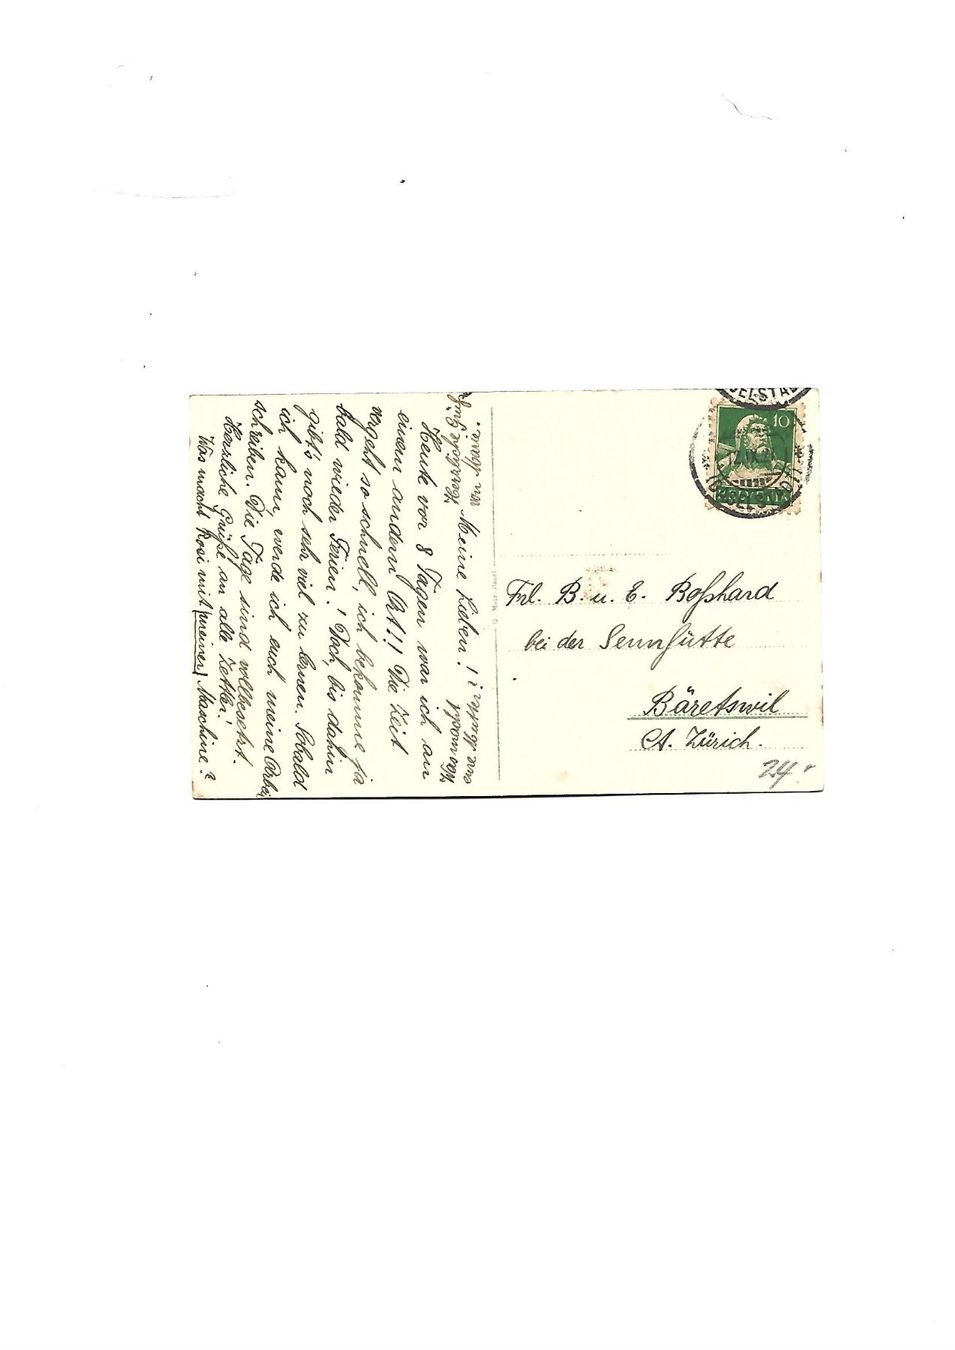 Meine Lieben!
Heute vor 8 Tagen war ich an
einem andern Ort!! Die Zeit
vergeht so schnell, ich bekomme ja
bald wieder Ferien! Doch, bis dahin
gibt's noch sehr viel zu lernen. Sobald
ich kann, werde ich euch meine Arbei
schreiben. Die Tage sind vollbesetzt.
Herzliche Grüße an alle Zettler!
Was macht Rosi mit (meiner) Maschine?
Herzliche
10
Frl. B. u. E. Boßhard
bei der Sennhütte
Bäretswil
Ct. Zürich.
24